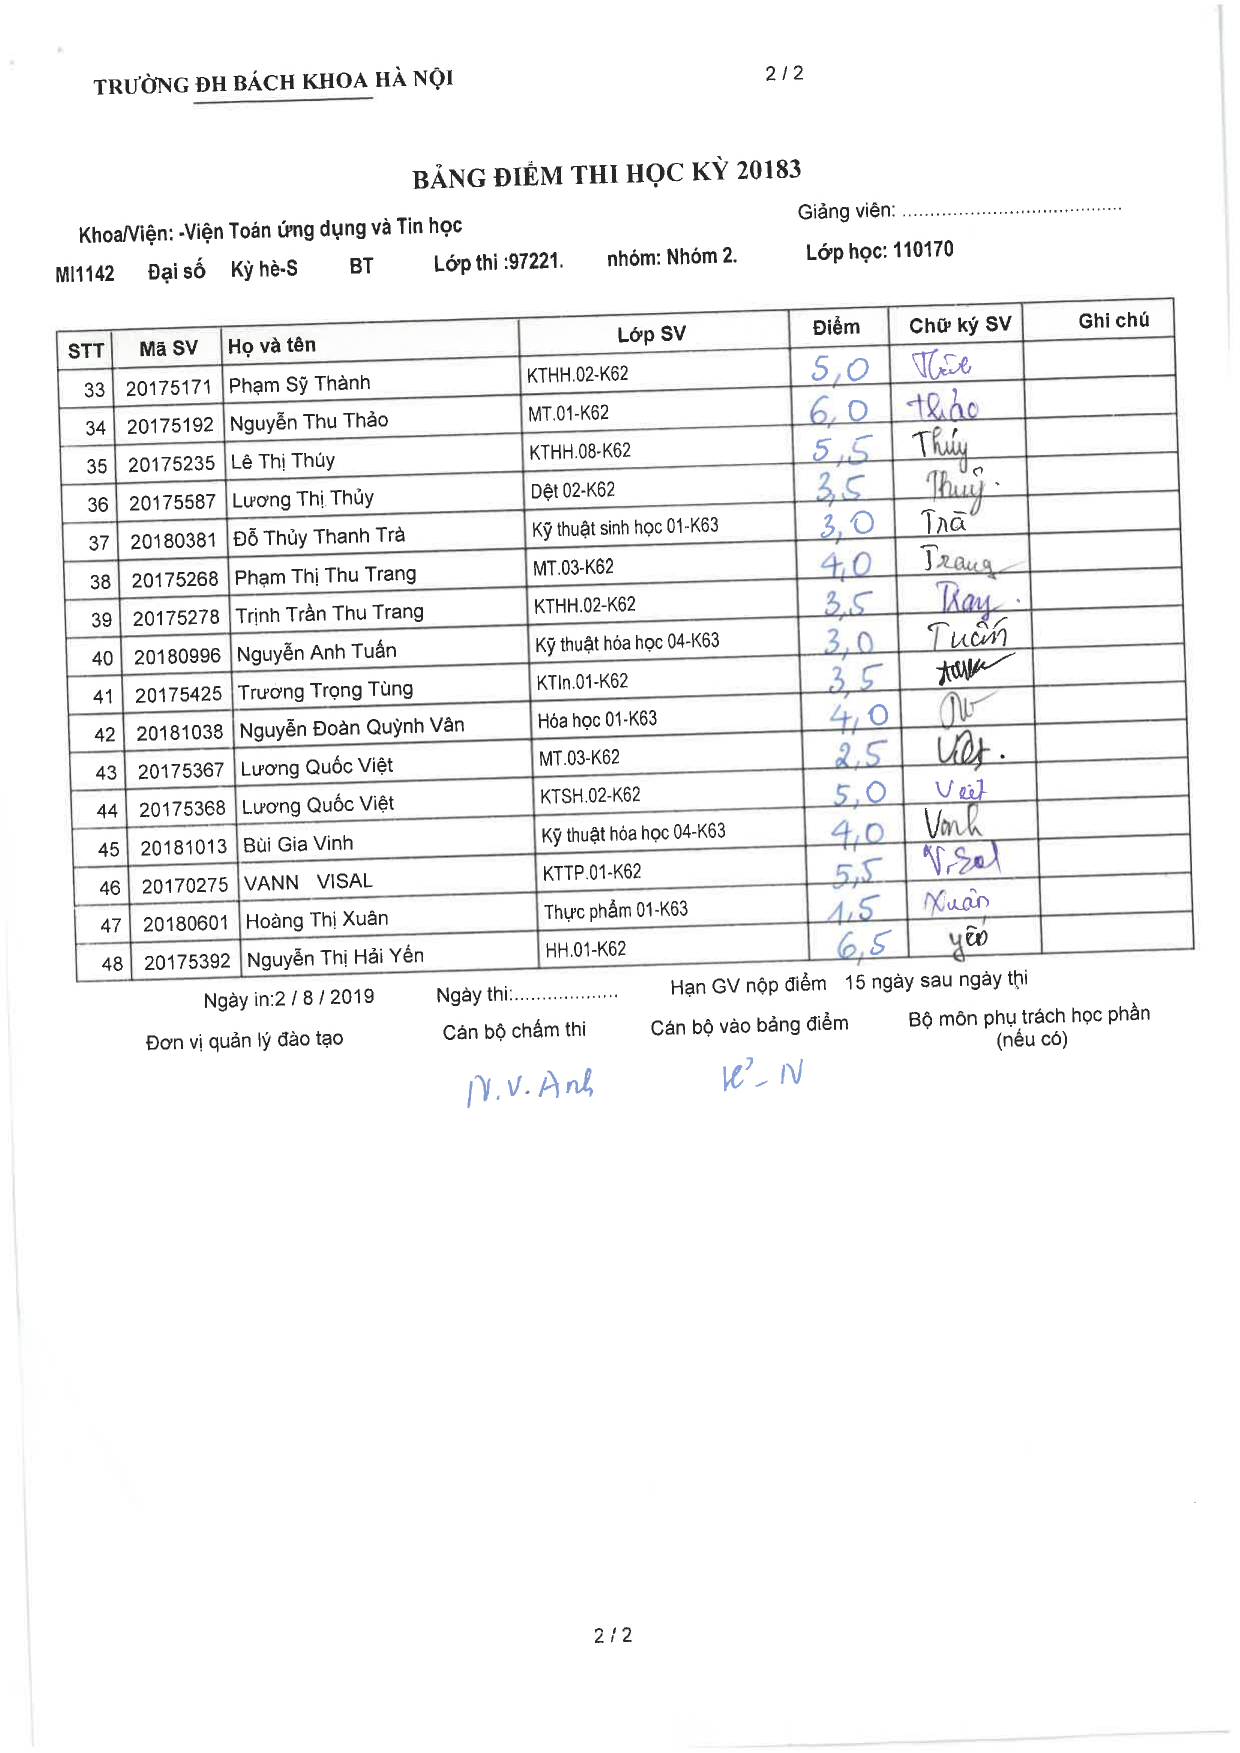 TRƯỜNG ĐH BÁCH KHOA HÀ NỘI 2 / 2
BẢNG ĐIỂM THI HỌC KỲ 20183
Khoa/Viện: -Viện Toán ứng dụng và Tin học Giảng viên: ........................................
MI1142 Đại số Kỳ hè-S BT Lớp thi :97221. nhóm: Nhóm 2. Lớp học: 110170
STT Mã SV Họ và tên Lớp SV Điểm Chữ ký SV Ghi chú
33 20175171 Phạm Sỹ Thành KTHH.02-K62 5,0
34 20175192 Nguyễn Thu Thảo MT.01-K62 6,0 thảo
35 20175235 Lê Thị Thúy KTHH.08-K62 5,5 Thúy
36 20175587 Lương Thị Thủy Dệt 02-K62 3,5 Thuỷ
37 20180381 Đỗ Thủy Thanh Trà Kỹ thuật sinh học 01-K63 3,0 Trà
38 20175268 Phạm Thị Thu Trang MT.03-K62 4,0 Trang
39 20175278 Trịnh Trần Thu Trang KTHH.02-K62 3,5
40 20180996 Nguyễn Anh Tuấn Kỹ thuật hóa học 04-K63 3,0 Tuấn
41 20175425 Trương Trọng Tùng KTIn.01-K62 3,5
42 20181038 Nguyễn Đoàn Quỳnh Vân Hóa học 01-K63 4,0
43 20175367 Lương Quốc Việt MT.03-K62 2,5
44 20175368 Lương Quốc Việt KTSH.02-K62 5,0 Việt
45 20181013 Bùi Gia Vinh Kỹ thuật hóa học 04-K63 4,0 Vinh
46 20170275 VANN VISAL KTTP.01-K62 5,5
47 20180601 Hoàng Thị Xuân Thực phẩm 01-K63 1,5 Xuân
48 20175392 Nguyễn Thị Hải Yến HH.01-K62 6,5 yến
Ngày in:2 / 8 / 2019 Ngày thi:................... Hạn GV nộp điểm 15 ngày sau ngày thi
Đơn vị quản lý đào tạo Cán bộ chấm thi Cán bộ vào bảng điểm Bộ môn phụ trách học phần
(nếu có)
N.V.Anh
2 / 2